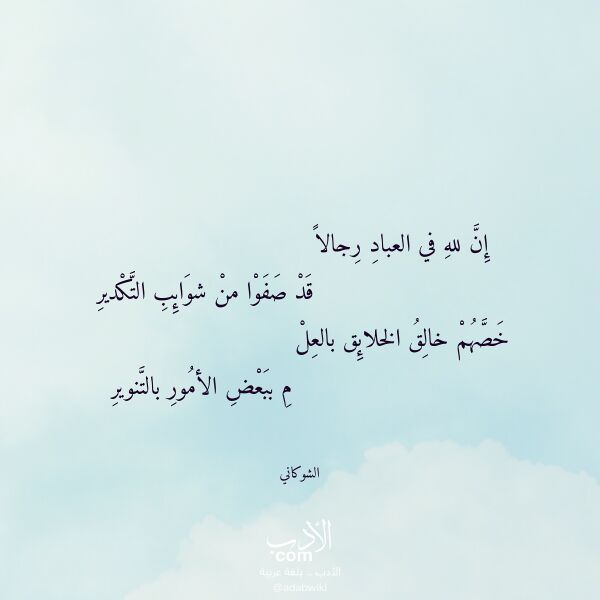 إِنَّ للهِ في العبادِ رِجالاً
قَدْ صَفَوْا منْ شوَايِبِ التَّكْديرِ
خَصَّهُمْ خالِقُ الخلايِق بالعِلْ
مِ ببَعْضِ الأمُورِ بالتَّنويرِ
الشوكاني
الأدب
com
الأدب .. بلغة عربية
@adabwiki